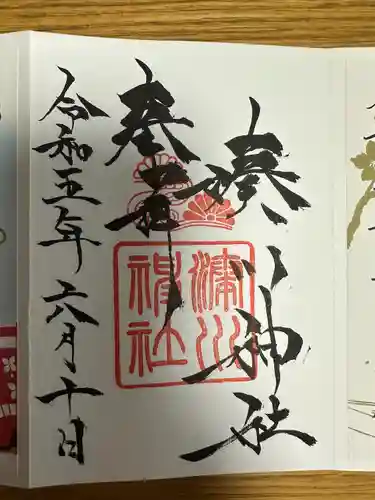 湊川神社
奉拝
湊川
神社
令和五年六月十日